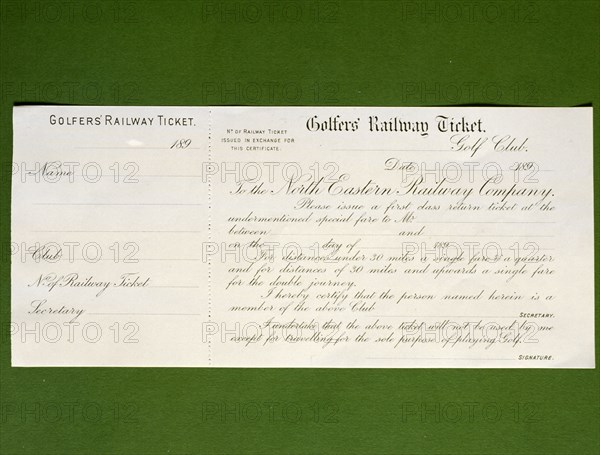 GOLFERS' RAILWAY TICKET.
189
Name
Club
No of Railway Ticket
Secretary
No OF RAILWAY TICKET
ISSUED IN EXCHANGE FOR
THIS CERTIFICATE.
Golfers' Railway Ticket.
Golf Club.
Date 189
To the North Eastern Railway Company.
Please issue a first class return ticket at the
undermentioned special fare to Mr
between and
on the day of 189
For distances under 30 miles a single fare & a quarter
and for distances of 30 miles and upwards a single fare
for the double journey.
I hereby certify that the person named herein is a
member of the above Club
SECRETARY.
I undertake that the above ticket will not be used by me
except for travelling for the sole purpose of playing Golf.
SIGNATURE.
PHOTO 12